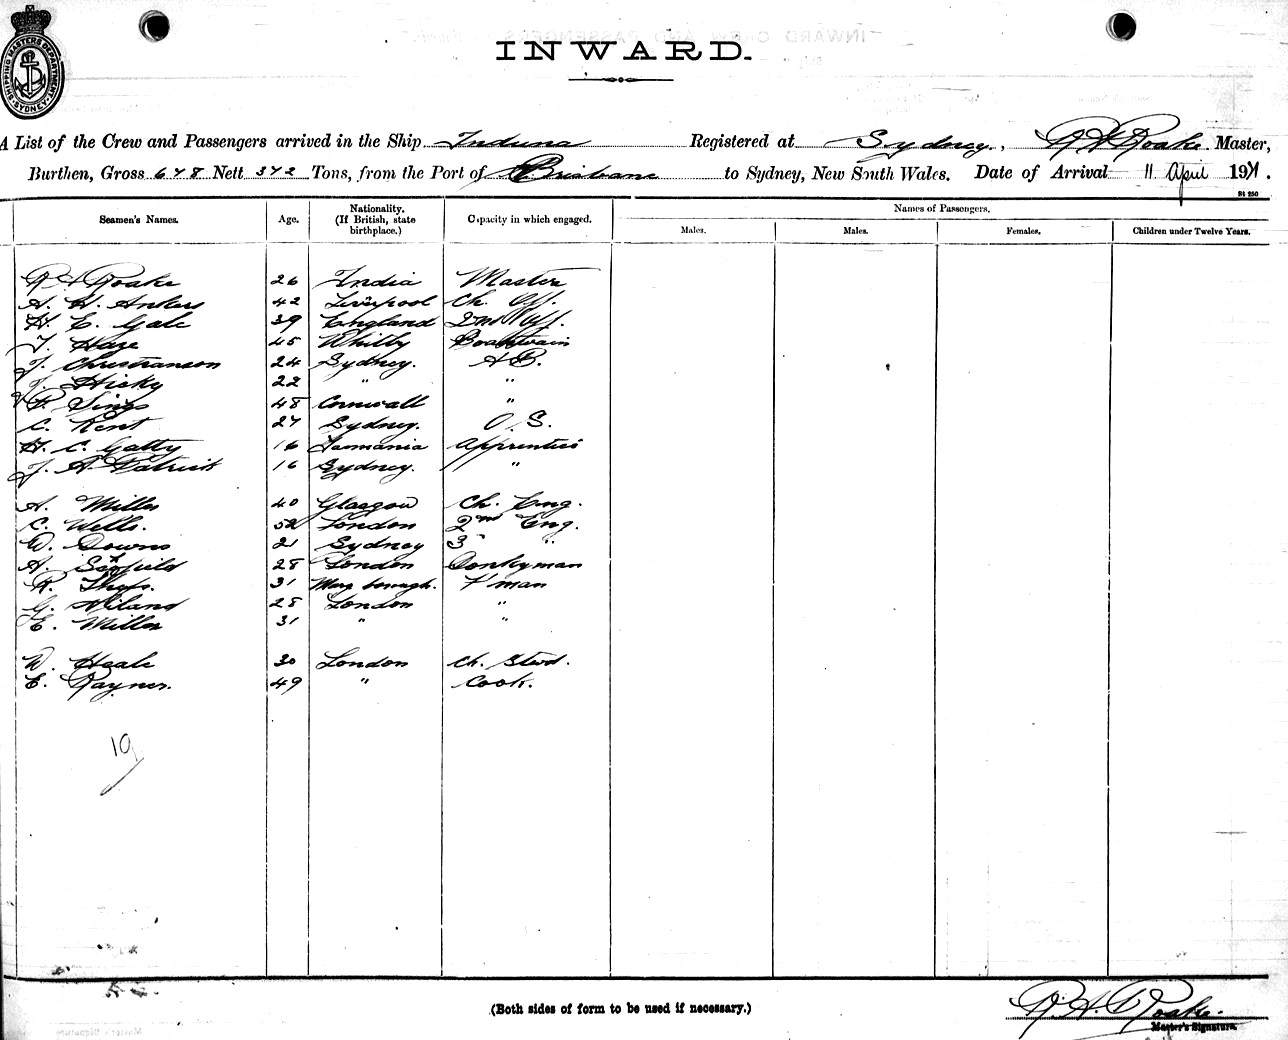 SHIPPING MASTERS DEPARTMENT SYDNEY
INWARD.
A List of the Crew and Passengers arrived in the Ship Induna Registered at Sydney, R A Roake Master,
Burthen, Gross 678 Nett 372 Tons, from the Port of Brisbane to Sydney, New South Wales. Date of Arrival 11 April 19
St 250
Seamen's Names. Age. Nationality. (If British, state birthplace.) Capacity in which engaged. Names of Passengers.
Males. Males. Females. Children under Twelve Years.
R A Roake 26 India Master
A. H. Ankers 42 Liverpool Ch. Off.
H. E. Gale 39 England 2nd Off.
T. Haze 45 Whitby Boatswain
J. Christianson 24 Sydney. AB.
J. Hicky 22 " "
P. Sings 48 Cornwall "
C. Kent 27 Sydney. O. S.
H. C. Gatty 16 Tasmania Apprentice
J. A. Patrick 16 Sydney. "
A. Miller 40 Glasgow Ch. Eng.
C. Wells. 52 London 2nd Eng.
W. Downs 21 Sydney 3 "
A. 28 London Donkyman
R. 31 F'man
G. 28 London "
E. Miller 31 " "
W. Heale 30 London Ch. Stwd.
E. Rayner. 49 " Cook.
19
(Both sides of form to be used if necessary.)
R. A. Roake.
Master's Signature.